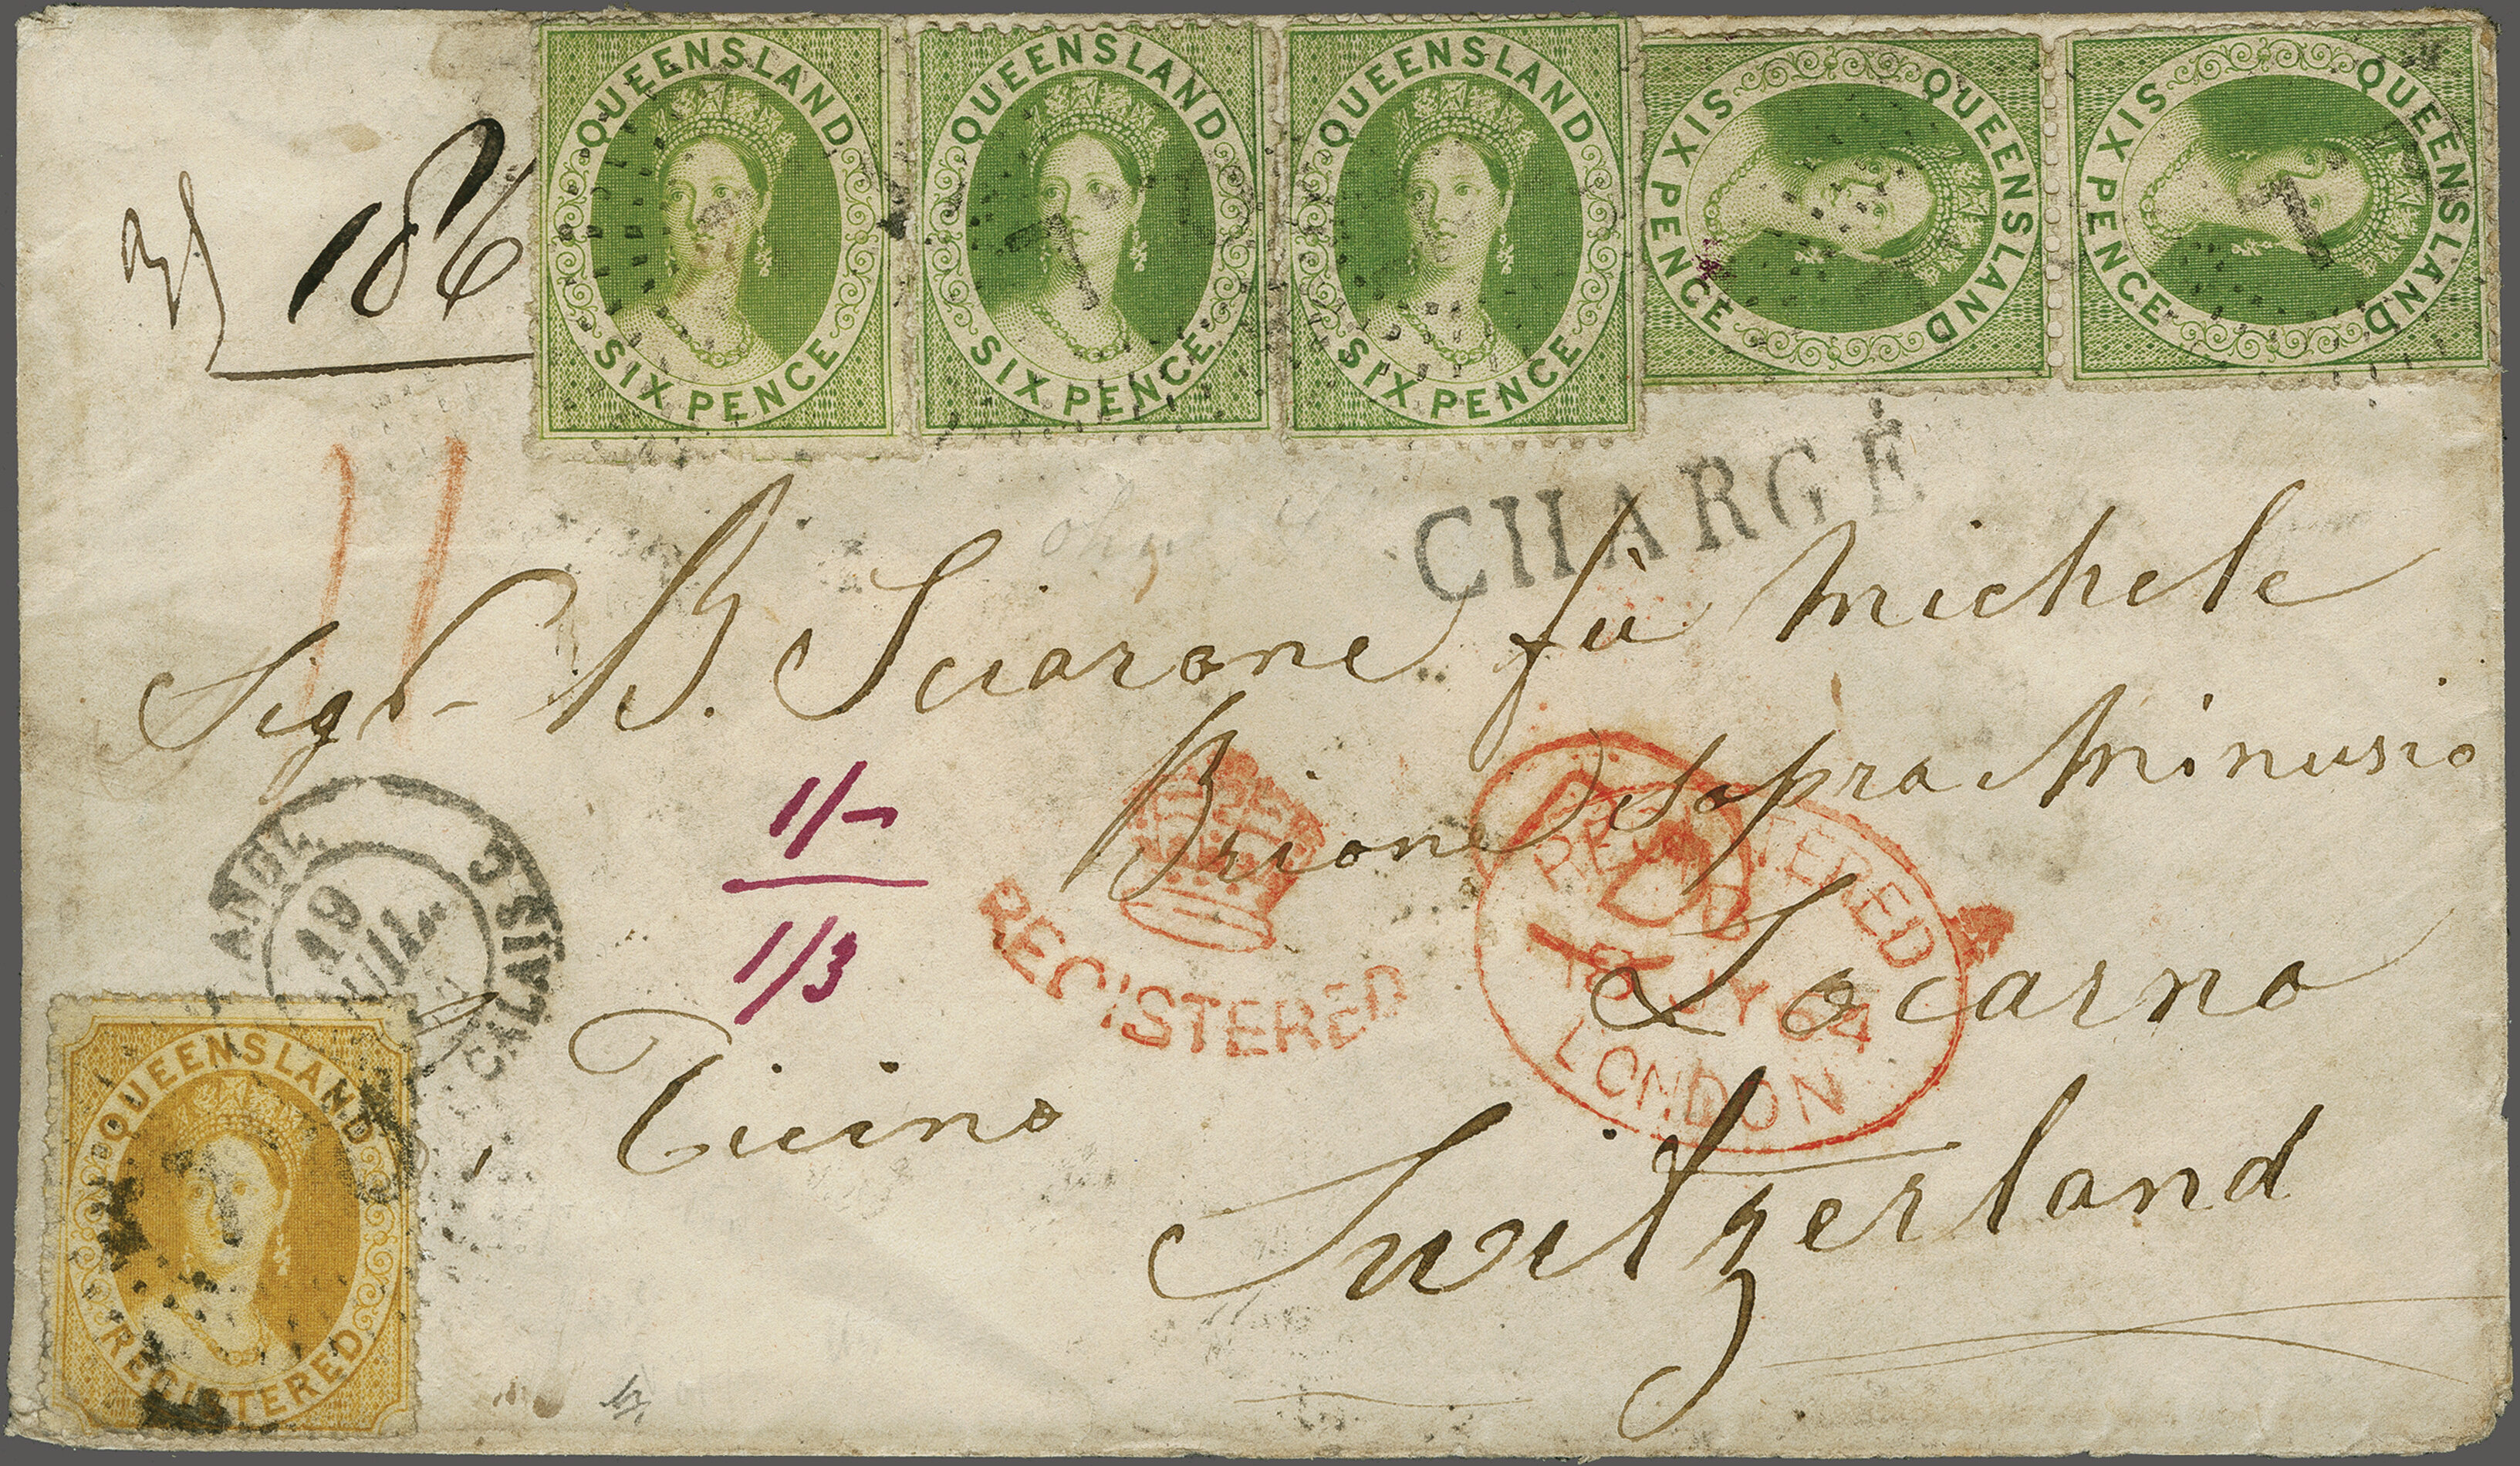 QUEENSLAND SIX PENCE
QUEENSLAND SIX PENCE
QUEENSLAND SIX PENCE
QUEENSLAND SIX PENCE
QUEENSLAND SIX PENCE
186
CHARGÉ
Sigr B. Sciarone fù Michele
Brione sopra Minusio
1/-
1/3
REGISTERED
REGISTERED
18 JY 64
LONDON
ANGL.
19
JUIL.
CALAIS
Locarno
Ticino
Switzerland
QUEENSLAND
REGISTERED